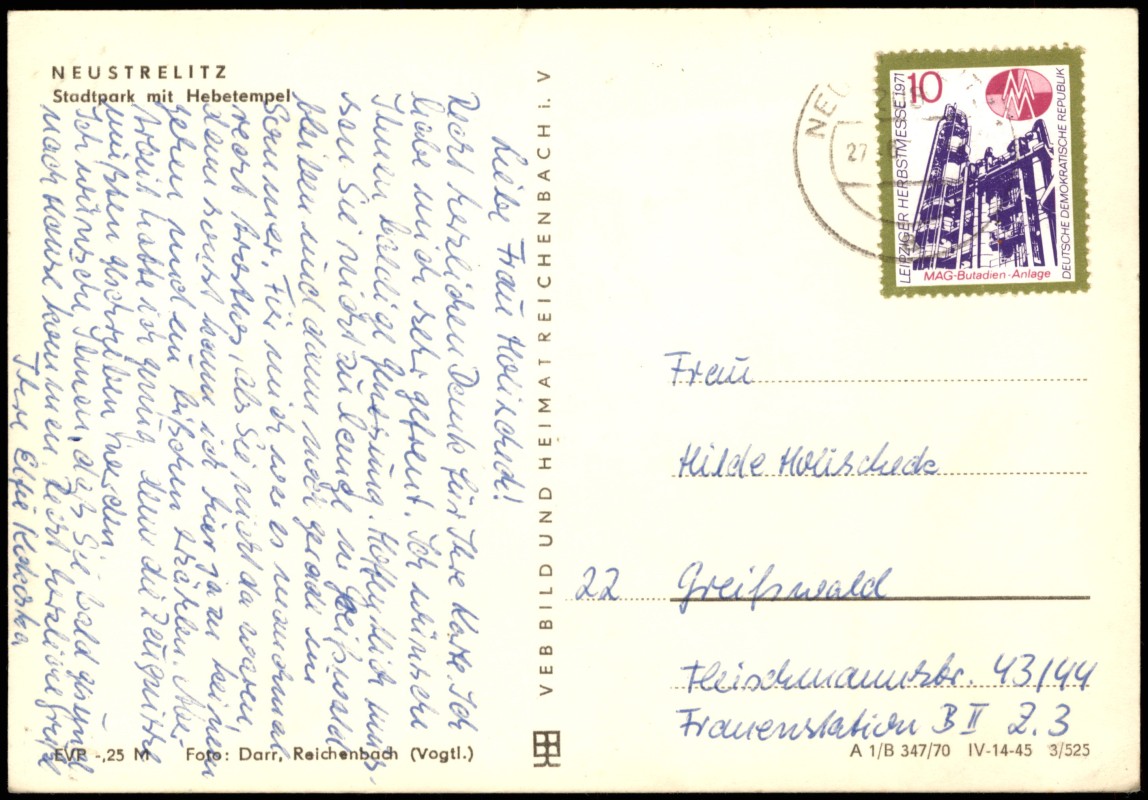 NEUSTRELITZ
Stadtpark mit Hebetempel
Liebe Frau Holischeck!
Recht herzlichen Dank für Ihre Karte. Ich
habe mich sehr gefreut. Ich wünsche
Ihnen baldige Genesung. Hoffentlich müs-
sen Sie nicht zu lange in Greifswald
bleiben und dann noch gerade im
Sommer. Für mich war es manchmal
recht trostlos, als Sie nicht da waren,
denn sonst kann ich hier ja zu keinem
gehen und ein bißchen erzählen. Ar-
beit hatte ich genug, denn die Zeugnisse
mußten geschrieben werden.
Ich wünsche Ihnen, daß Sie bald gesund
nach Hause kommen. Recht herzliche Grüße
Ihre Elfie
EVP -,25 M Foto: Darr, Reichenbach (Vogtl.)
VEB BILD UND HEIMAT REICHENBACH i. V
NEU
27.
10
LEIPZIGER HERBSTMESSE 1971
MM
DEUTSCHE DEMOKRATISCHE REPUBLIK
MAG-Butadien-Anlage
Frau
Hilde Holischeck
22 Greifswald
Fleischmannstr. 43/44
Frauenstation B II Z.3
A 1/B 347/70 IV-14-45 3/525